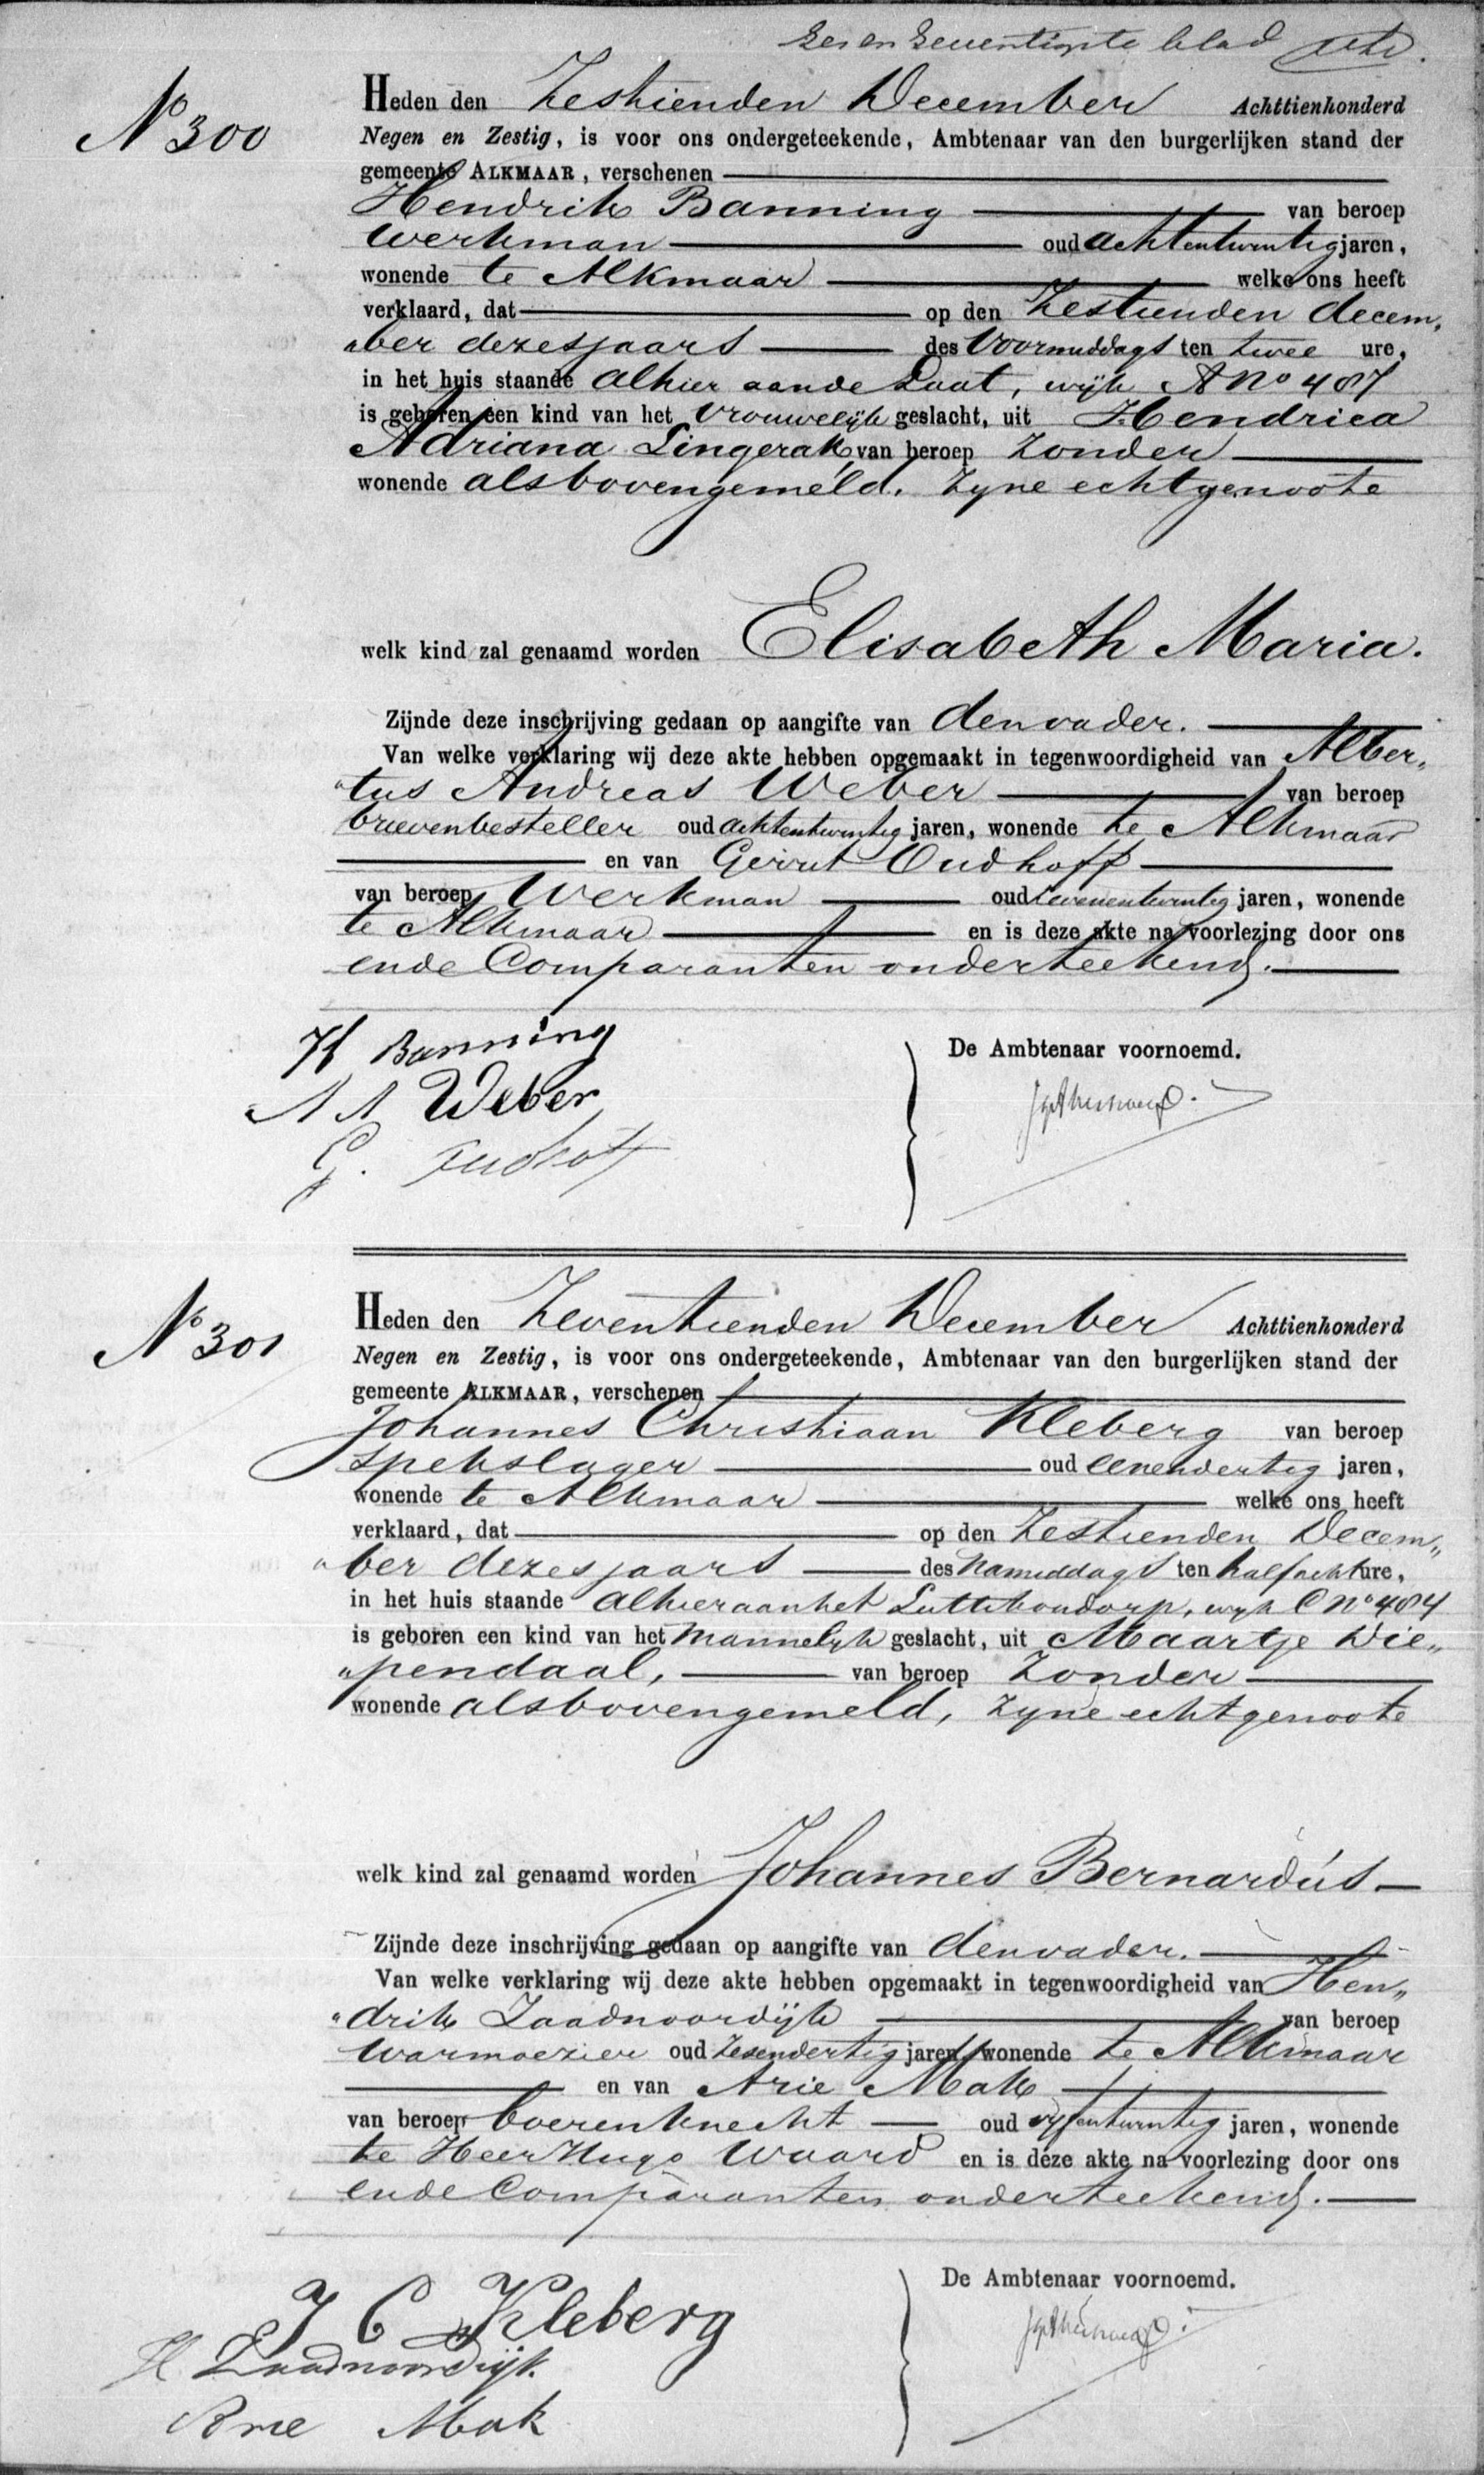 Zes en Zeventigste blad
N° 300
Heden den Zestienden December Achttienhonderd
Negen en Zestig, is voor ons ondergeteekende, Ambtenaar van den burgerlijken stand der
gemeente ALKMAAR, verschenen
Hendrik Banning van beroep
werkman oud achtentwintig jaren,
wonende te Alkmaar welke ons heeft
verklaard, dat op den Zestienden decem„
„ber dezesjaars des Voormiddags ten twee ure,
in het huis staande alhier aande Laat, wijk A N° 487
is geboren een kind van het Vrouwelijk geslacht, uit Hendrica
Adriana Lingerak, van beroep Zonder
wonende alsbovengemeld. Zyne echtgenoote
welk kind zal genaamd worden Elisabeth Maria.
Zijnde deze inschrijving gedaan op aangifte van denvader.
Van welke verklaring wij deze akte hebben opgemaakt in tegenwoordigheid van Alber„
„tus Andreas Weber van beroep
brievenbesteller oud achtentwintig jaren, wonende te Alkmaar
en van Gerrit Oudhoff
van beroep Werkman oud Zevenentwintig jaren, wonende
te Alkmaar en is deze akte na voorlezing door ons
ende Comparanten onderteekend.
H Banning
A A Weber
G. Oudhoff
De Ambtenaar voornoemd.
N° 301
Heden den Zeventienden December Achttienhonderd
Negen en Zestig, is voor ons ondergeteekende, Ambtenaar van den burgerlijken stand der
gemeente ALKMAAR, verschenen
Johannes Christiaan Kleberg van beroep
spekslager oud eenendertig jaren,
wonende te Alkmaar welke ons heeft
verklaard, dat op den Zestienden Decem„
„ber dezesjaars des Namiddags ten halfacht ure,
in het huis staande alhieraanhet Luttikoudorp, wijk C N° 484
is geboren een kind van het Mannelyk geslacht, uit Maartje Die„
„pendaal, van beroep Zonder
wonende alsbovengemeld, Zyne echtgenoote
welk kind zal genaamd worden Johannes Bernardús
Zijnde deze inschrijving gedaan op aangifte van denvader.
Van welke verklaring wij deze akte hebben opgemaakt in tegenwoordigheid van Hen„
„drik Zaadnoordijk van beroep
warmoezier oud Zesendertig jaren, wonende te Alkmaar
en van Arie Mak
van beroep boerenknecht oud vyfentwintig jaren, wonende
te Heer Hugo Waard en is deze akte na voorlezing door ons
ende Comparanten onderteekend.
J C Kleberg
H Zaadnoordijk.
Arie Mak
De Ambtenaar voornoemd.